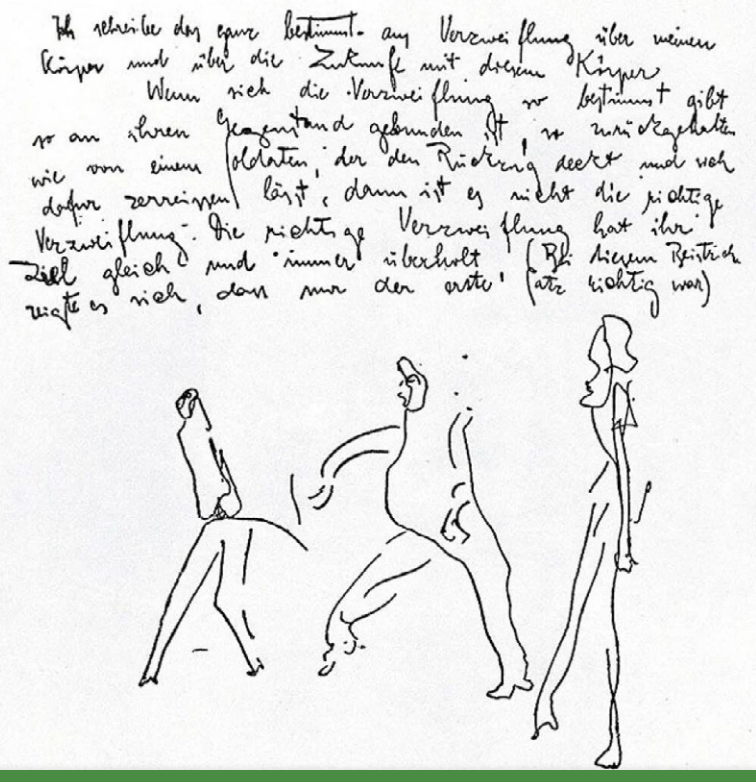 Ich schreibe das ganz bestimmt aus Verzweiflung über meinen
Körper und über die Zukunft mit diesem Körper
Wenn sich die Verzweiflung so bestimmt gibt
so an ihren Gegenstand gebunden ist, so zurückgehalten
wie von einem Soldaten, der den Rückzug deckt und sich
dafür zerreissen lässt, dann ist es nicht die richtige
Verzweiflung. Die richtige Verzweiflung hat ihr
Ziel gleich und immer überholt (Bei diesem Beistrich
zeigte es sich, dass nur der erste Satz richtig war)